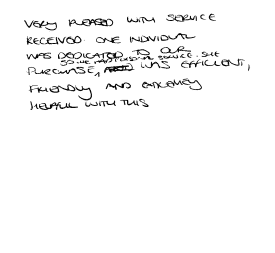 VERY PLEASED WITH SERVICE
RECEIVED. ONE INDIVIDUAL
WAS DEDICATED TO OUR
SO WE HAD PERSONAL SERVICE. SHE
PURCHASE, WAS EFFICIENT,
FRIENDLY AND EXTREMELY
HELPFUL WITH THIS